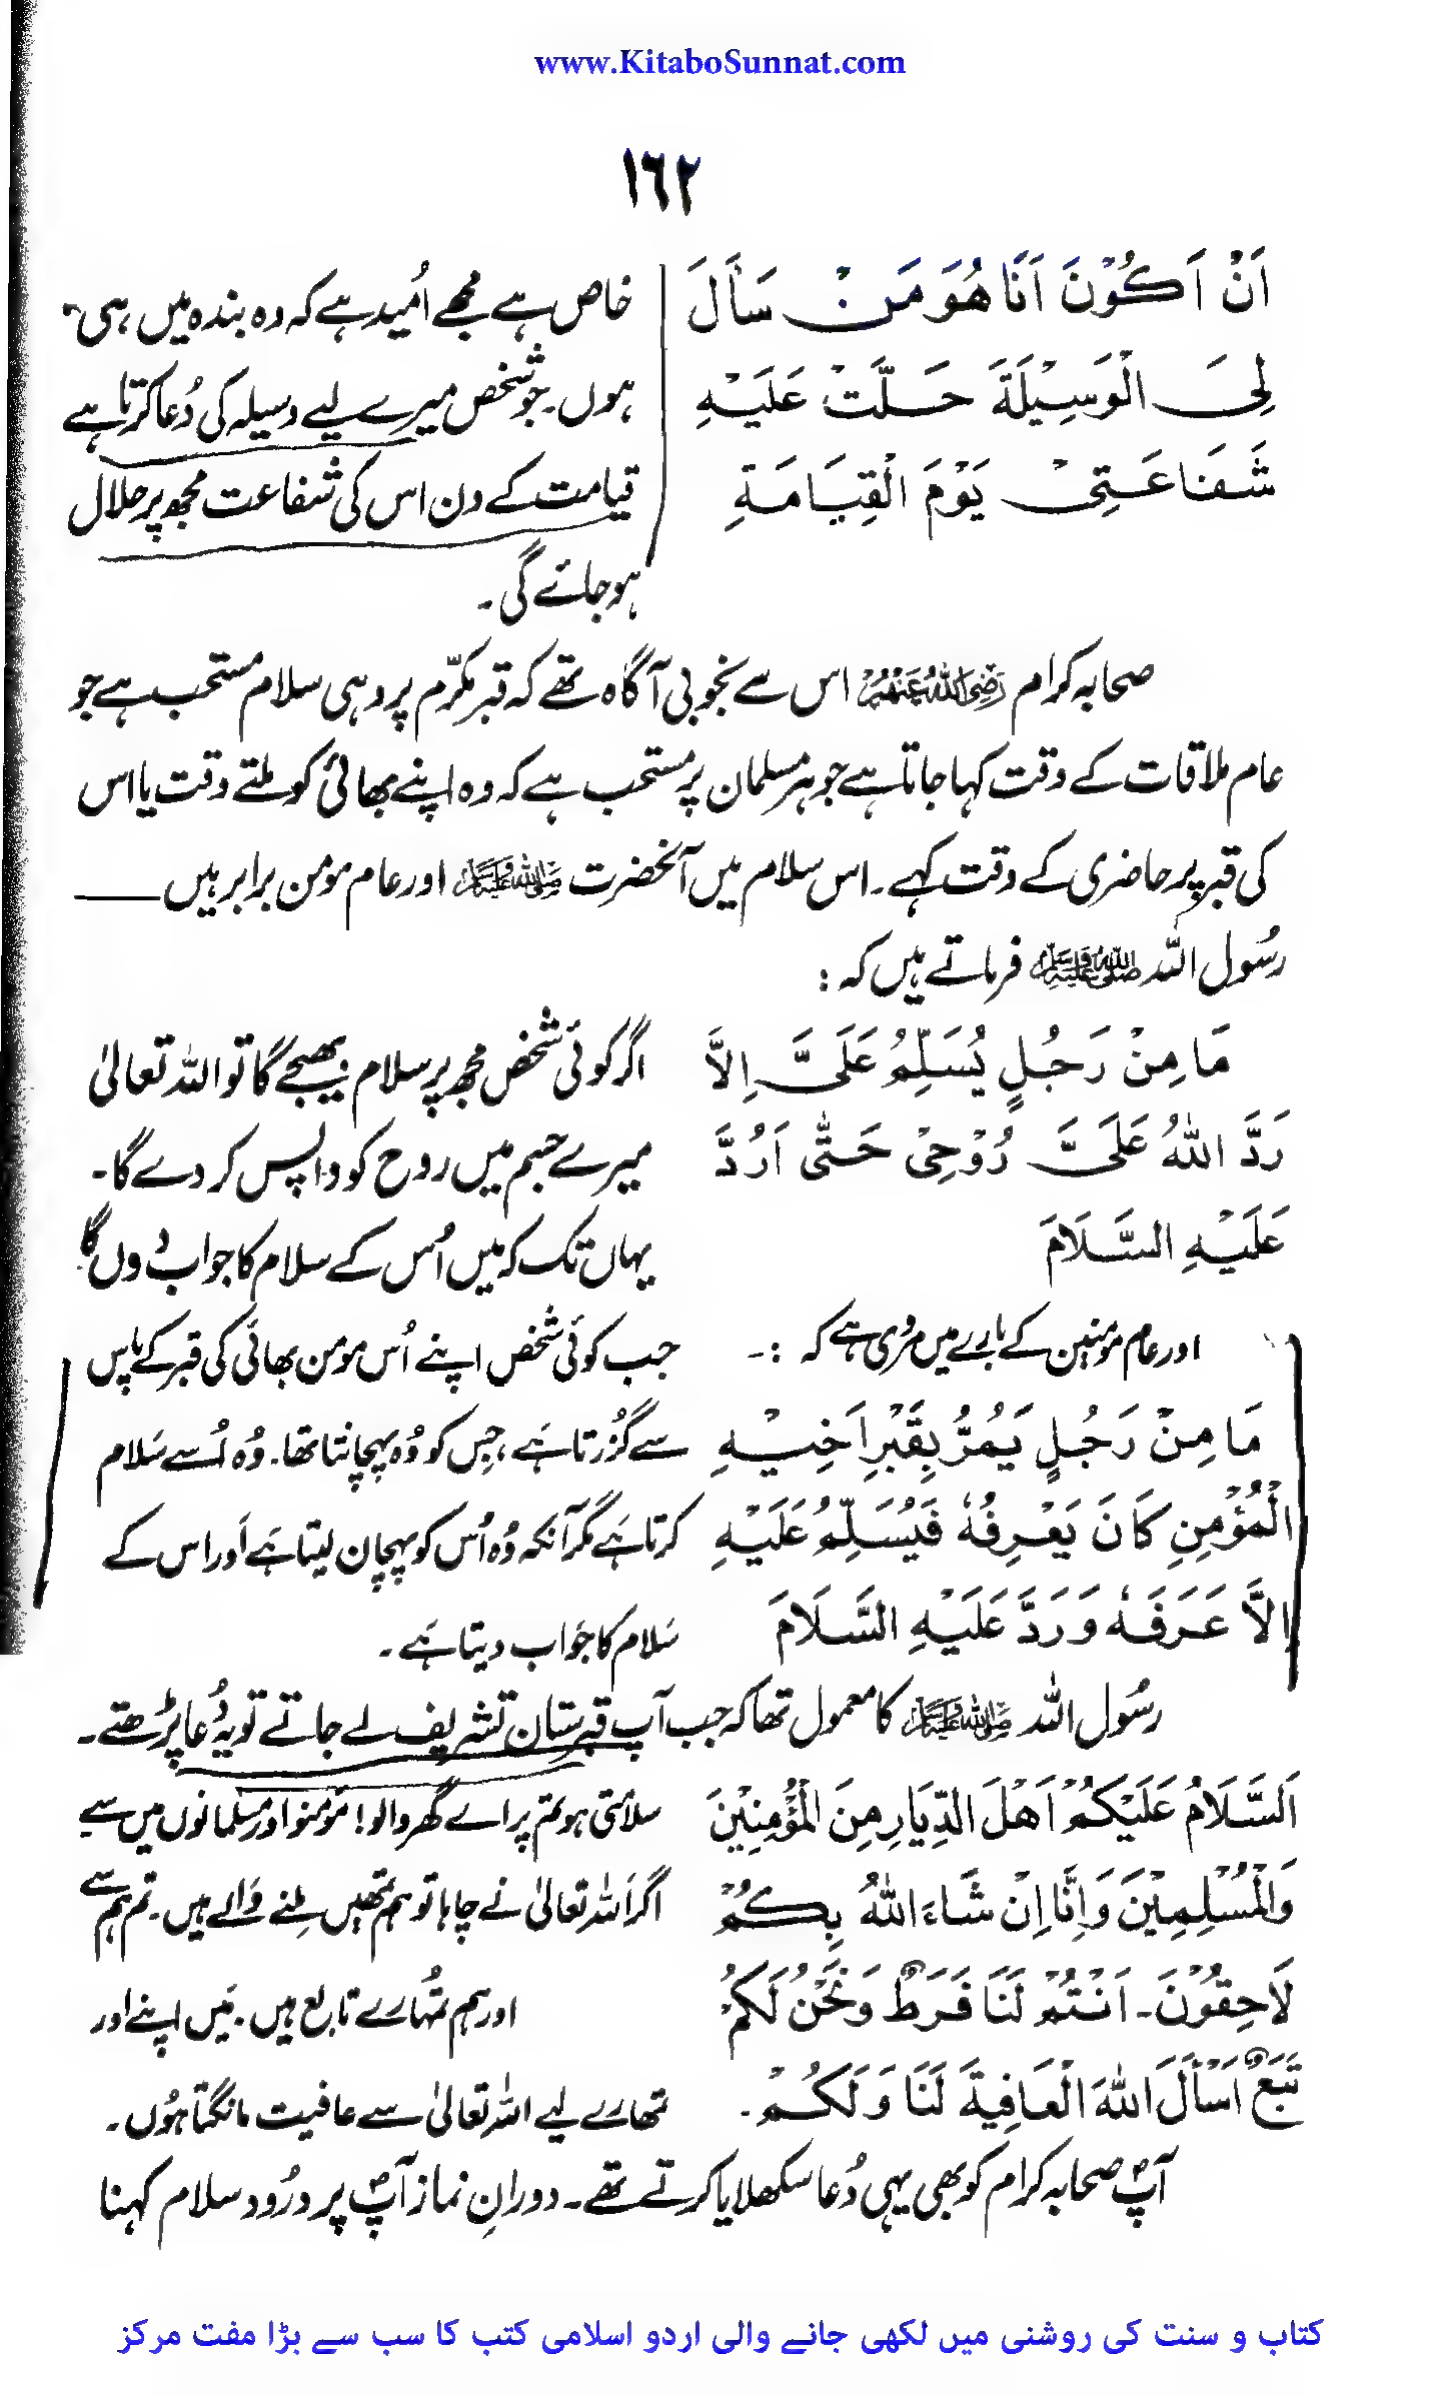 www.KitaboSunnat.com
١٦٢
اَنْ اَكُوْنَ اَنَا هُوَ مَنْ سَأَلَ
لِىَ الْوَسِيْلَةَ حَلَّتْ عَلَيْهِ
شَفَاعَتِىْ يَوْمَ الْقِيَامَةِ
خاص ہے مجھے اُمید ہے کہ وہ بندہ میں ہی
ہوں۔ جو شخص میرے لیے وسیلہ کی دُعا کرتا ہے
قیامت کے دن اس کی شفاعت مجھ پر حلال
ہو جائے گی۔
صحابہ کرام رَضِیَ اللهُ عَنْهُمْ اس سے بخوبی آگاہ تھے کہ قبر مکرّم پر وہی سلام مستحب ہے جو
عام ملاقات کے وقت کہا جاتا ہے جو ہر مسلمان پر مستحب ہے کہ وہ اپنے بھائی کو ملتے وقت یا اس
کی قبر پر حاضری کے وقت کہے۔ اس سلام میں آنحضرت ﷺ اور عام مومن برابر ہیں ——
رسُول اللہ ﷺ فرماتے ہیں کہ :
مَا مِنْ رَجُلٍ يُسَلِّمُ عَلَىَّ اِلاَّ
رَدَّ اللهُ عَلَىَّ رُوْحِىْ حَتّٰى اَرُدَّ
عَلَيْهِ السَّلَامَ
اگر کوئی شخص مجھ پر سلام بھیجے گا تو اللہ تعالیٰ
میرے جسم میں روح کو واپس کر دے گا۔
یہاں تک کہ میں اُس کے سلام کا جواب دوں گا
اور عام مومنین کے بارے میں مروی ہے کہ :۔
مَا مِنْ رَجُلٍ يَمُرُّ بِقَبْرِ اَخِيْهِ
الْمُؤْمِنِ كَانَ يَعْرِفُهٗ فَيُسَلِّمُ عَلَيْهِ
اِلاَّ عَرَفَهٗ وَرَدَّ عَلَيْهِ السَّلَامَ
جب کوئی شخص اپنے اُس مومن بھائی کی قبر کے پاس
سے گزُرتا ہَے، جِس کو وُہ پہچانتا تھا۔ وُہ اُسے سَلام
کرتا ہَے مگر آنکہ وُہ اُس کو پہچان لیتا ہَے اَور اس کے
سَلام کا جَواب دیتا ہَے۔
رسُول اللہ ﷺ کا معمول تھا کہ جب آپ قبرستان تشریف لے جاتے تو یہ دُعا پڑھتے۔
اَلسَّلَامُ عَلَيْكُمْ اَهْلَ الدِّيَارِ مِنَ الْمُؤْمِنِيْنَ
وَالْمُسْلِمِيْنَ وَاِنَّا اِنْ شَاءَ اللهُ بِكُمْ
لَاحِقُوْنَ۔ اَنْتُمْ لَنَا فَرَطٌ وَنَحْنُ لَكُمْ
تَبَعٌ اَسْأَلَ اللهَ الْعَافِيَةَ لَنَا وَلَكُمْ۔
سلامتی ہو تم پر اے گھر والو! مَومنو اور مسلمانوں میں سے
اگر اَللہ تعالیٰ نے چاہا تو ہم تمھیں ملِنے وَالے ہیں۔ تم ہم سے
اور ہم تمُہارے تابع ہیں۔ مَیں اپنے اور
تمھارے لیے اللہ تعالیٰ سے عافیت مانگتا ہُوں۔
آپؐ صحابہ کرام کو بھی یہی دُعا سکھلایا کرتے تھے۔ دورانِ نماز آپؐ پر درُود سلام کہنا
کتاب و سنت کی روشنی میں لکھی جانے والی اردو اسلامی کتب کا سب سے بڑا مفت مرکز